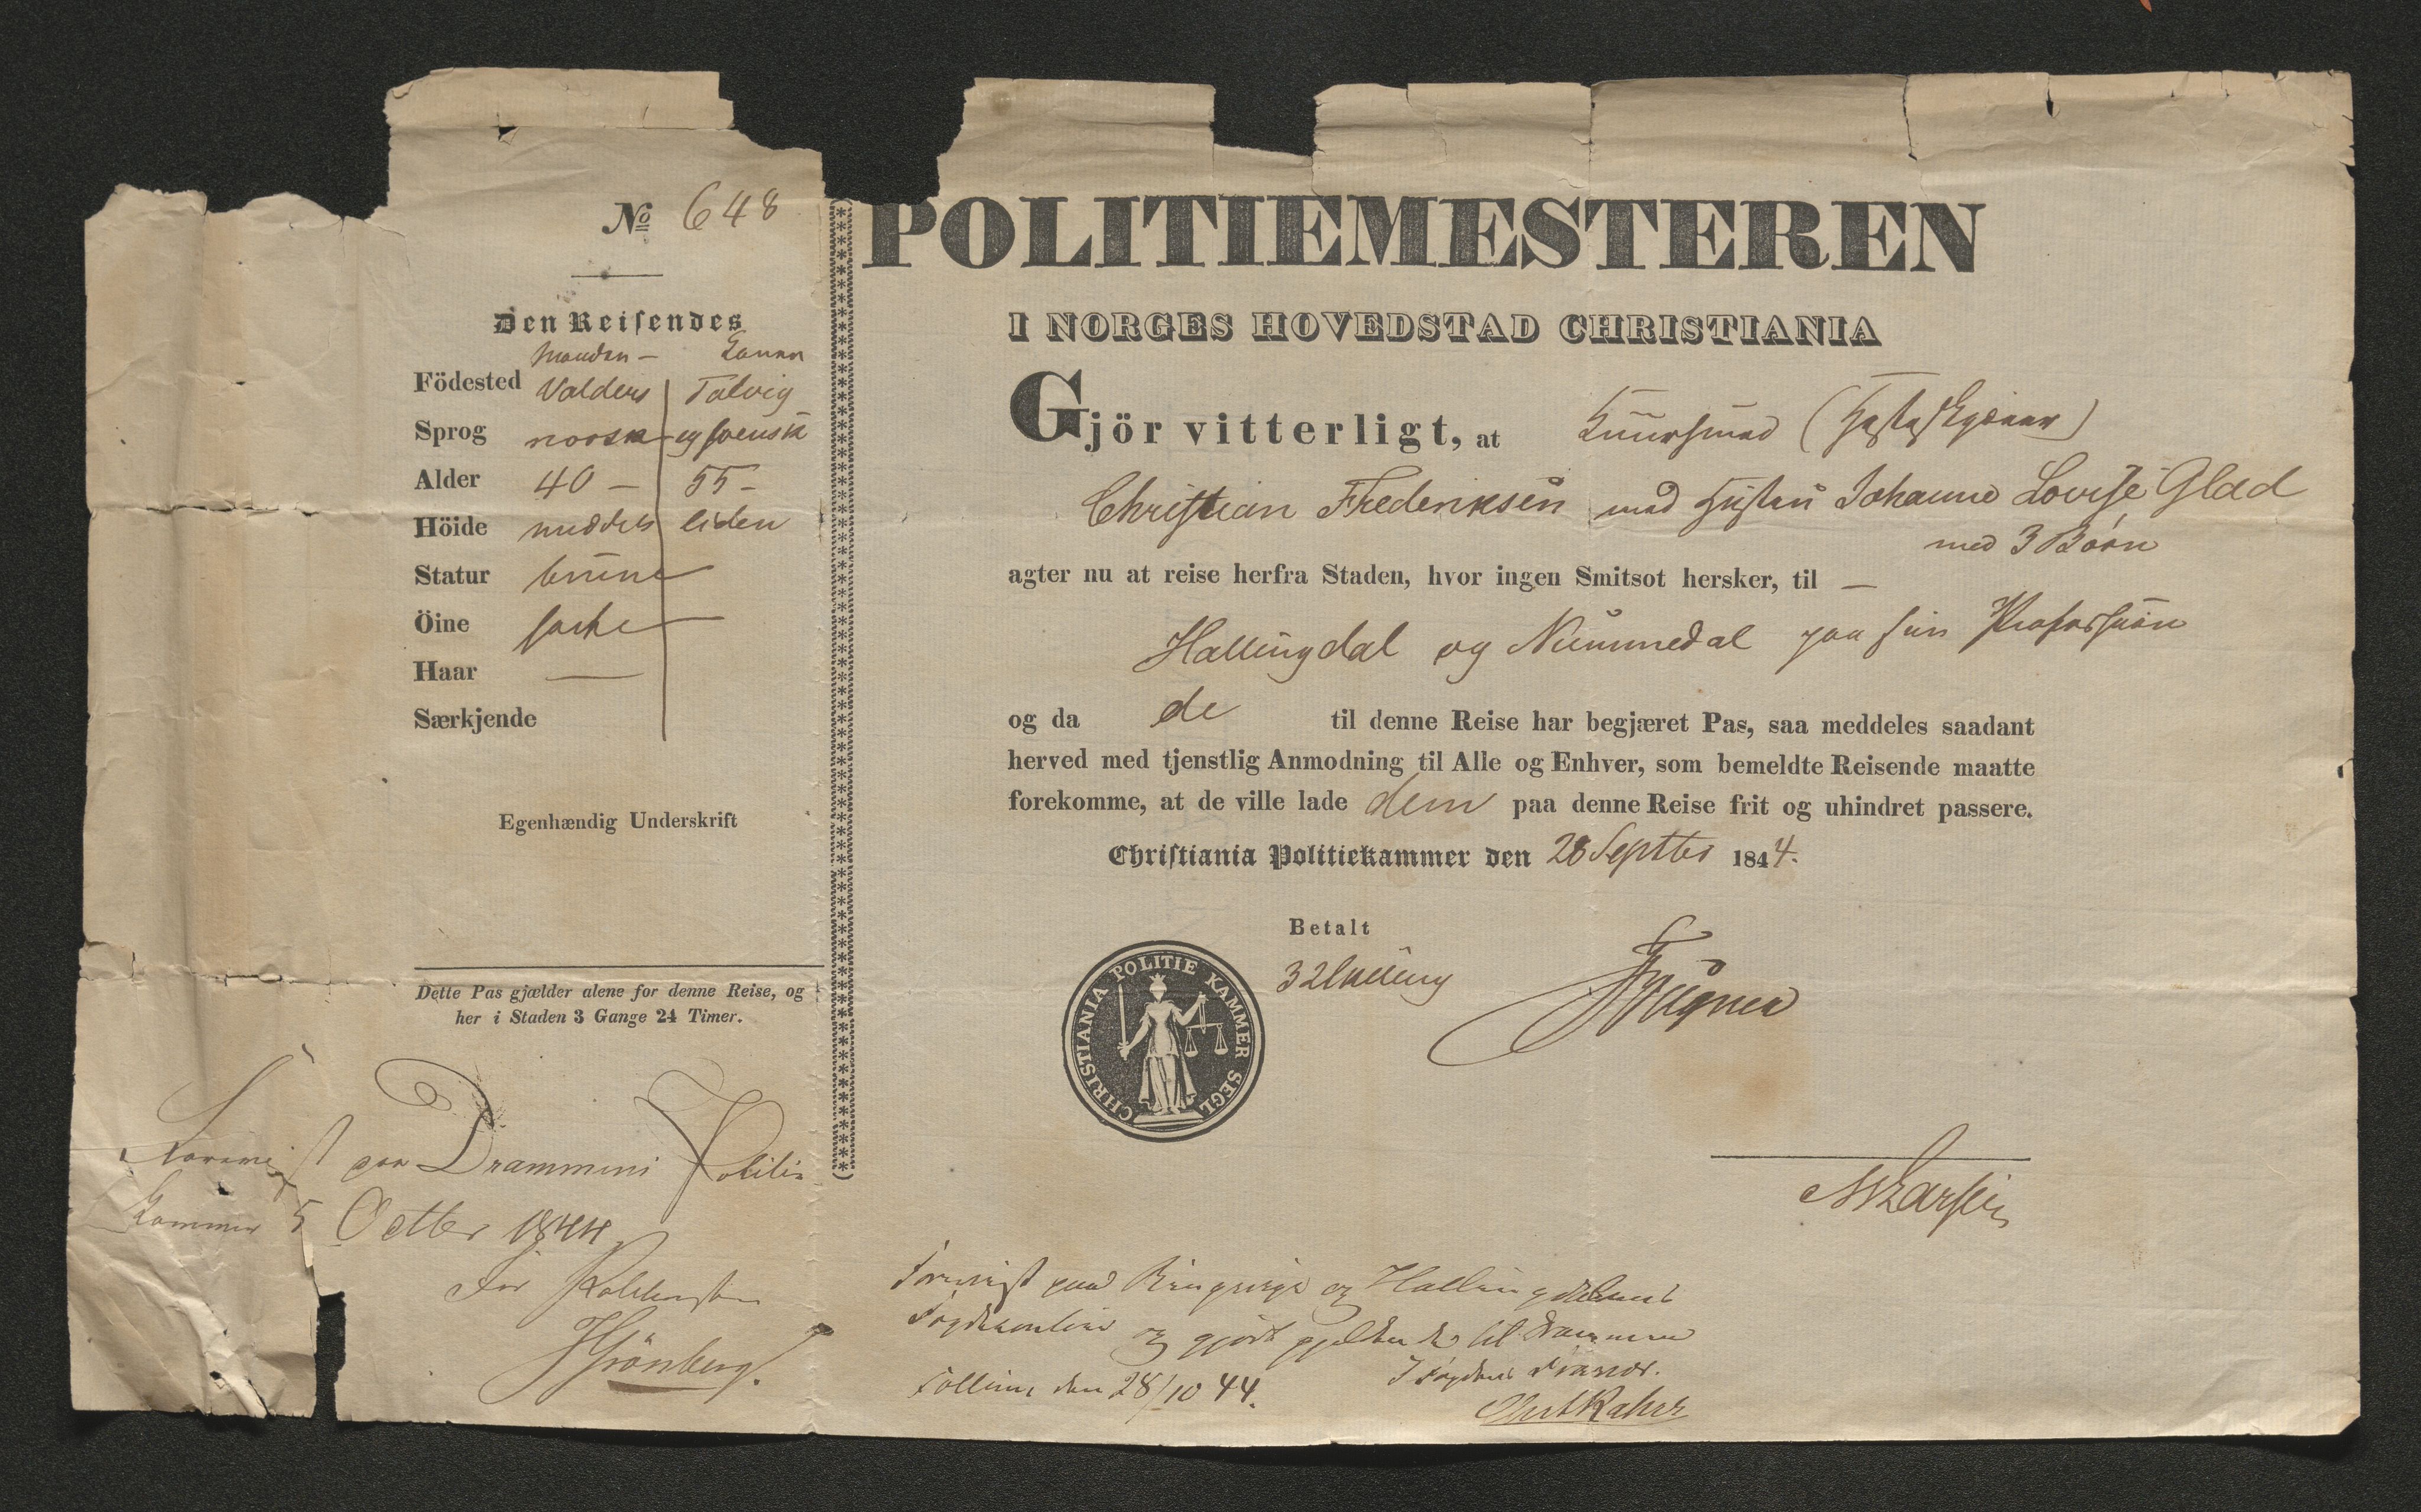 No 648
Den Reisendes
Manden - Konen
Födested Valders Talvig
Sprog norsk og svensk
Alder 40 - 55 -
Höide middels liden
Statur
Öine
Haar —
Særkjende
Egenhændig Underskrift
Dette Pas gjælder alene for denne Reise, og
her i Staden 3 Gange 24 Timer.
Foreviist paa Drammens Politie
Kammer 5 Octbr 1844
For Politimesteren
Grönberg.
POLITIEMESTEREN
I NORGES HOVEDSTAD CHRISTIANIA
Gjör vitterligt, at Kuursmed
Christian Frederiksen med Hustru Johanne Lovise Glad
med 3 Börn
agter nu at reise herfra Staden, hvor ingen Smitsot hersker, til —
Hallingdal og Nummedal paa sin Profession
og da de til denne Reise har begjæret Pas, saa meddeles saadant
herved med tjenstlig Anmodning til Alle og Enhver, som bemeldte Reisende maatte
forekomme, at de ville lade dem paa denne Reise frit og uhindret passere.
Christiania Politiekammer den 28 Septbr 1844.
Betalt
32 skilling
CHRISTIANIA POLITIE KAMMER SEGL
Foreviist paa Ringerige og Hallingdalens
Fogdekontoir og gjort gjeldende til Drammen
den 28/10 44.
I Fogdens Fravær.